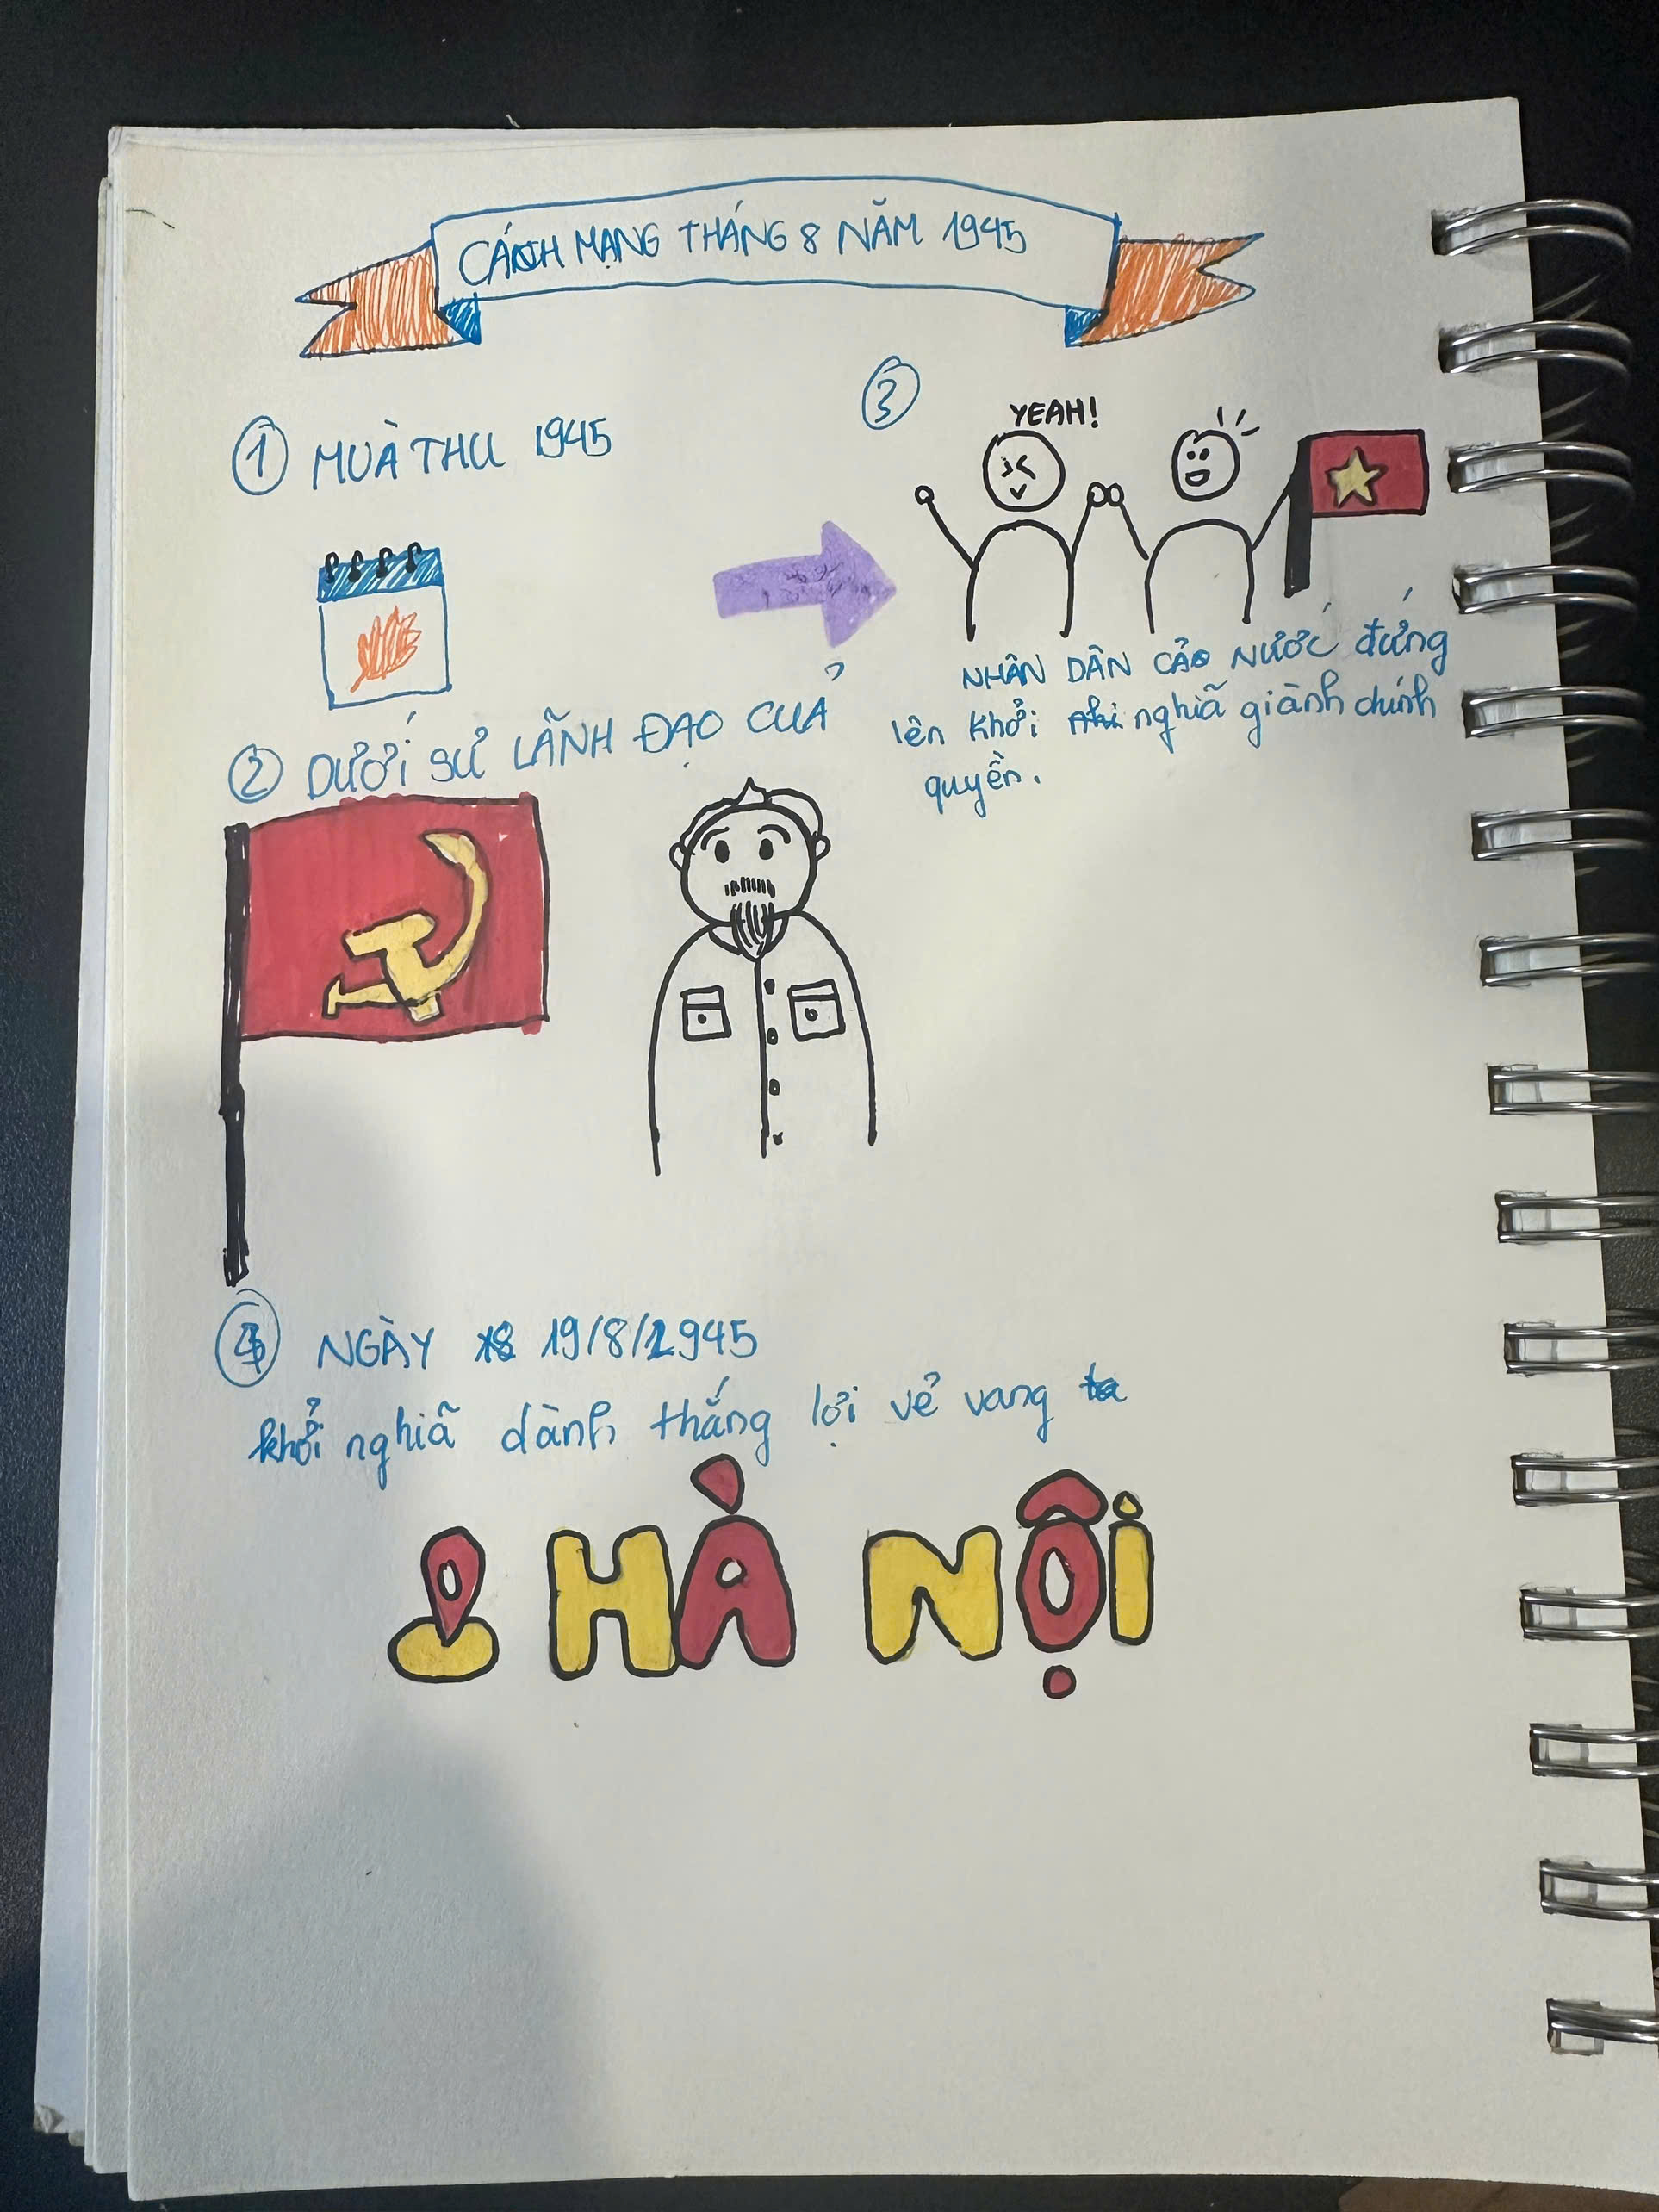 CÁCH MẠNG THÁNG 8 NĂM 1945
① MÙA THU 1945
② DƯỚI SỰ LÃNH ĐẠO CỦA
③
YEAH!
NHÂN DÂN CẢ NƯỚC đứng
lên khởi nghĩa giành chính
quyền.
④ NGÀY 19/8/1945
khởi nghĩa dành thắng lợi vẻ vang
HÀ NỘI